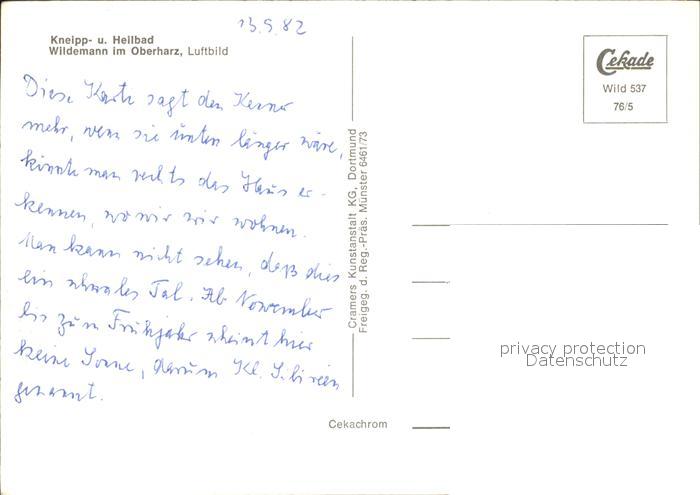 13.9.82
Kneipp- u. Heilbad
Wildemann im Oberharz, Luftbild
Diese Karte sagt dem Kenner
mehr, wenn sie unten länger wäre,
könnte man rechts das Haus er-
kennen, wo wir wir wohnen.
Man kann nicht sehen, daß dies
ein schmales Tal. Ab November
bis zum Frühjahr scheint hier
keine Sonne, darum Kl. Sibirien
genannt.
Cramers Kunstanstalt KG, Dortmund
Freigeg. d. Reg.-Präs. Münster 6461/73
Cekade
Wild 537
76/5
privacy protection
Datenschutz
Cekachrom